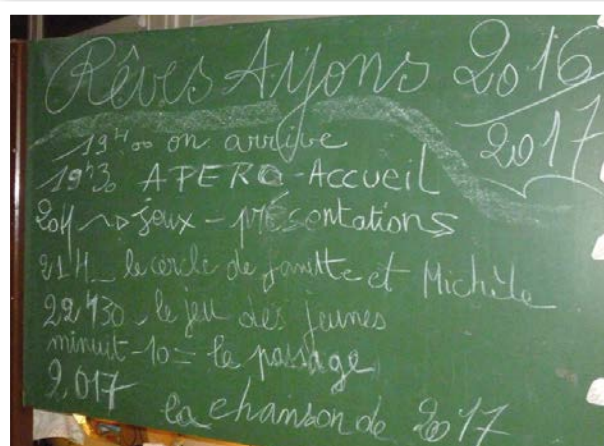 Rêves Ayons 2016
2017
19H00 on arrive
19H30 APERO-Accueil
20H → jeux - présentations
21H _ le cercle de et Michèle
22H30 - le jeu des jeunes
minuit -10 = le passage
2017
la chanson de 2017